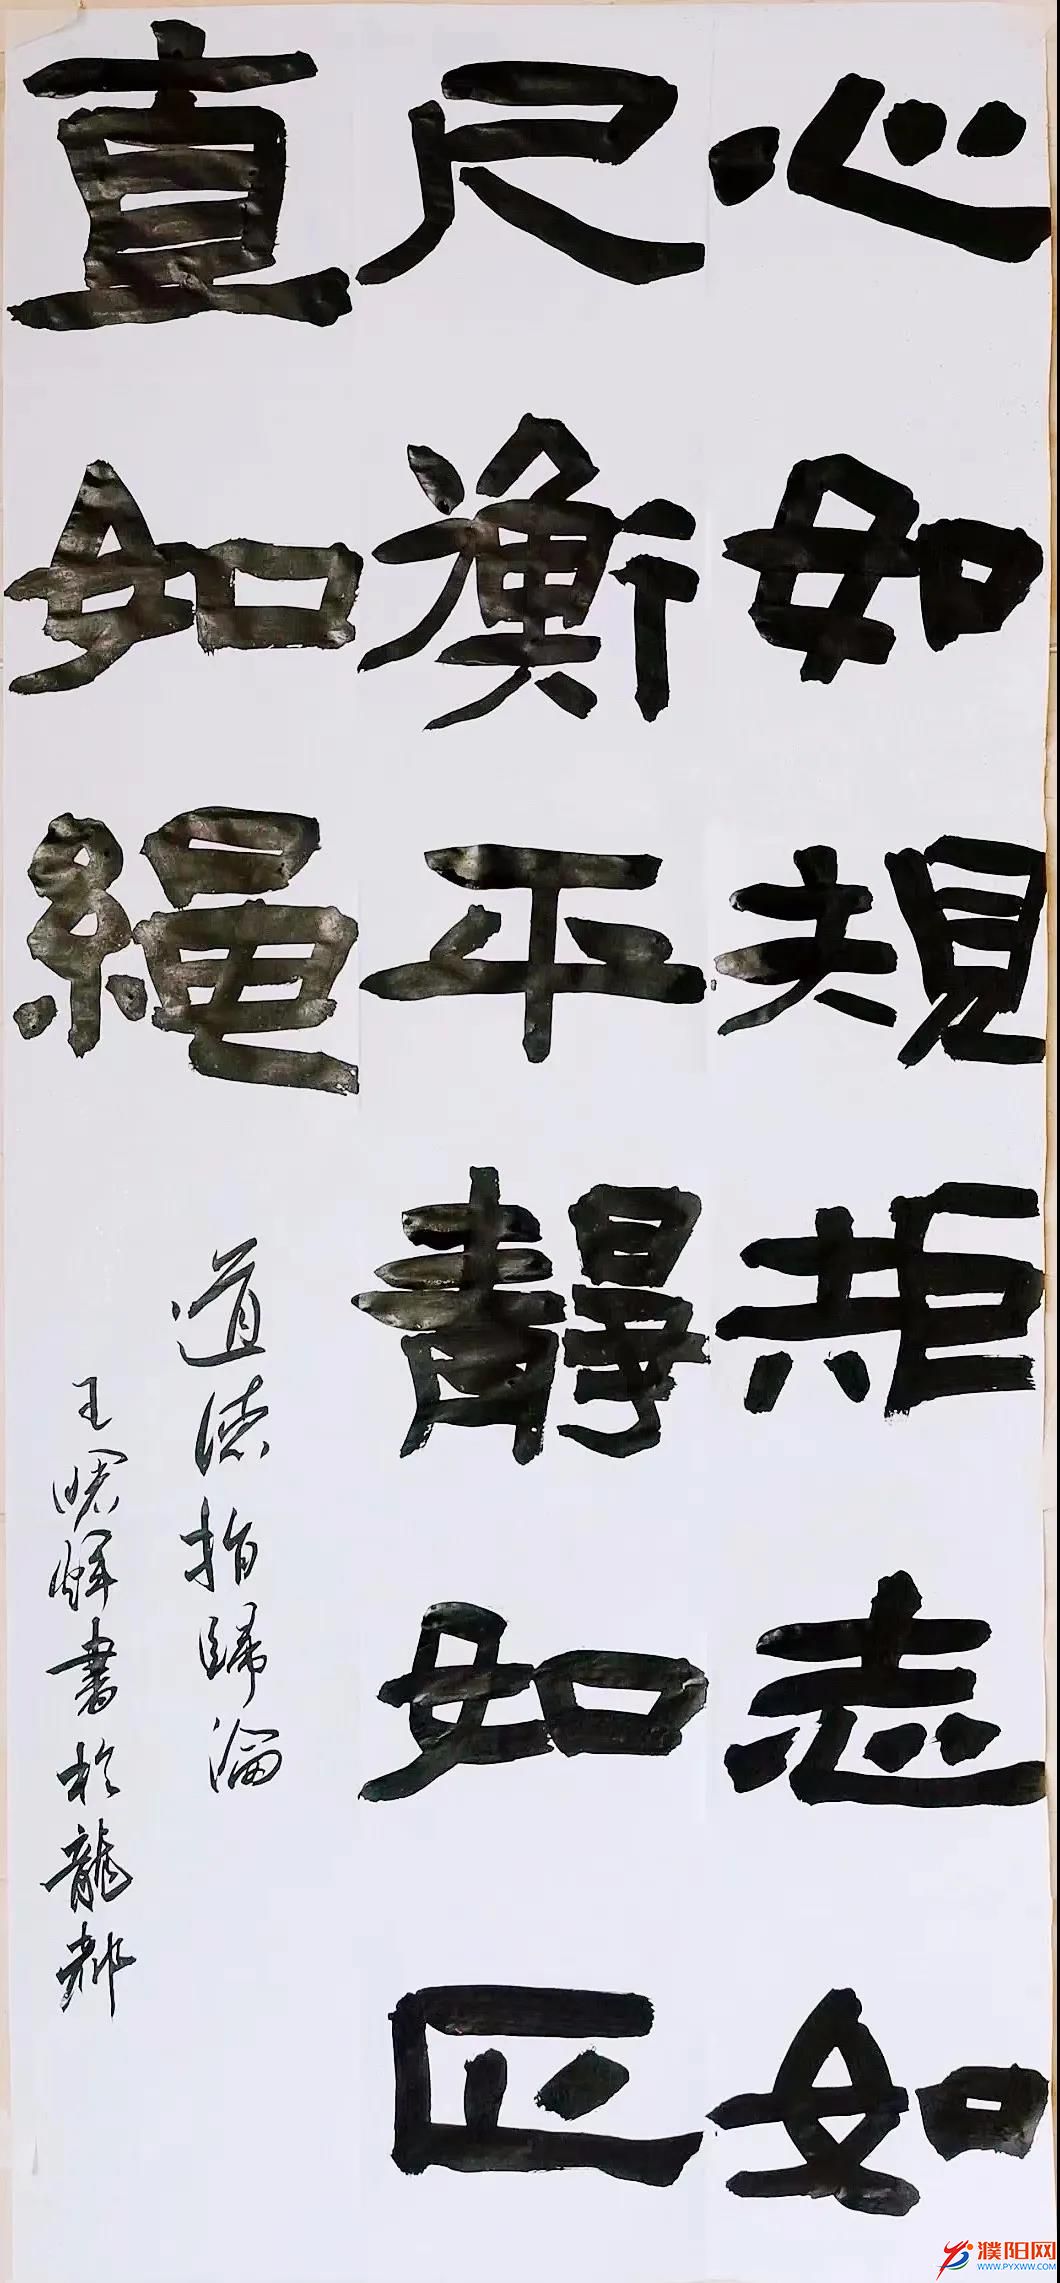 心如規矩志如
尺衡平静如正
直如繩
道德指歸論
王曙輝書於龍都
濮阳网
WWW.PYXWW.COM